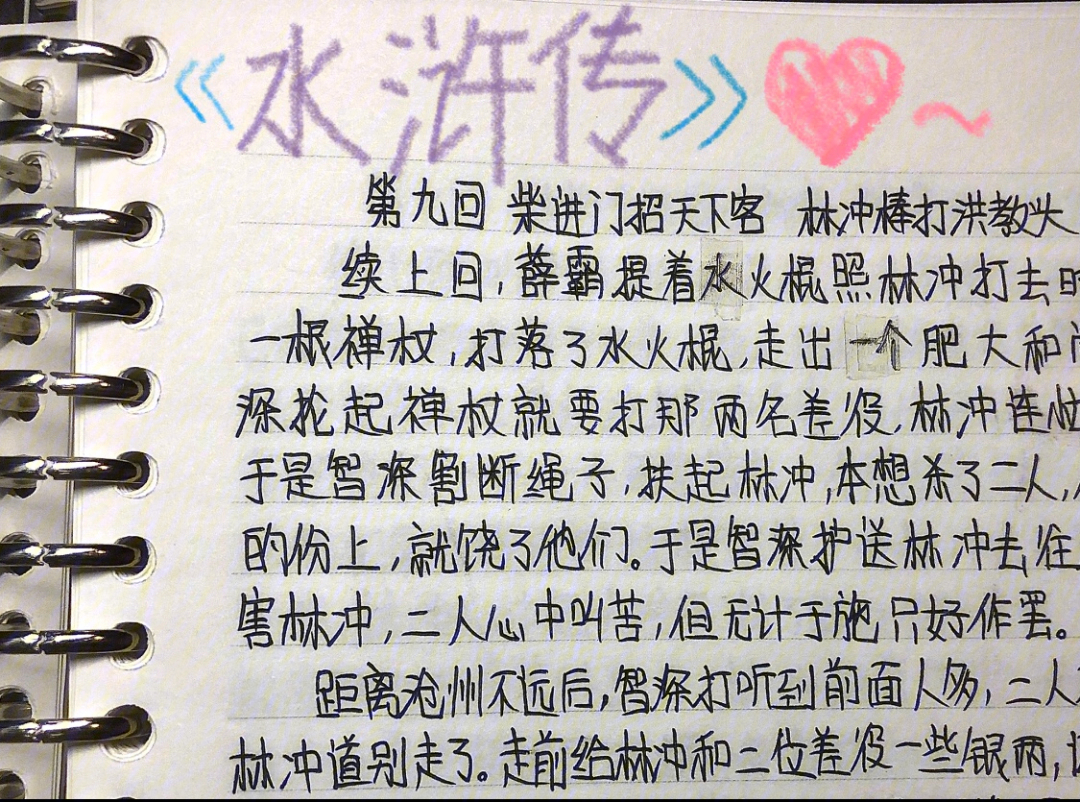 《水浒传》
第九回 柴进门招天下客 林冲棒打洪教头
续上回,薛霸提着水火棍照林冲打去时
一根禅杖,打落了水火棍,走出一个肥大和尚
深抡起禅杖就要打那两名差役,林冲连忙
于是智深割断绳子,扶起林冲,本想杀了二人,
的份上,就饶了他们。于是智深护送林冲去往
害林冲,二人心中叫苦,但无计于施只好作罢。
距离沧州不远后,智深打听到前面人多,二人
林冲道别走了。走前给林冲和二位差役一些银两,